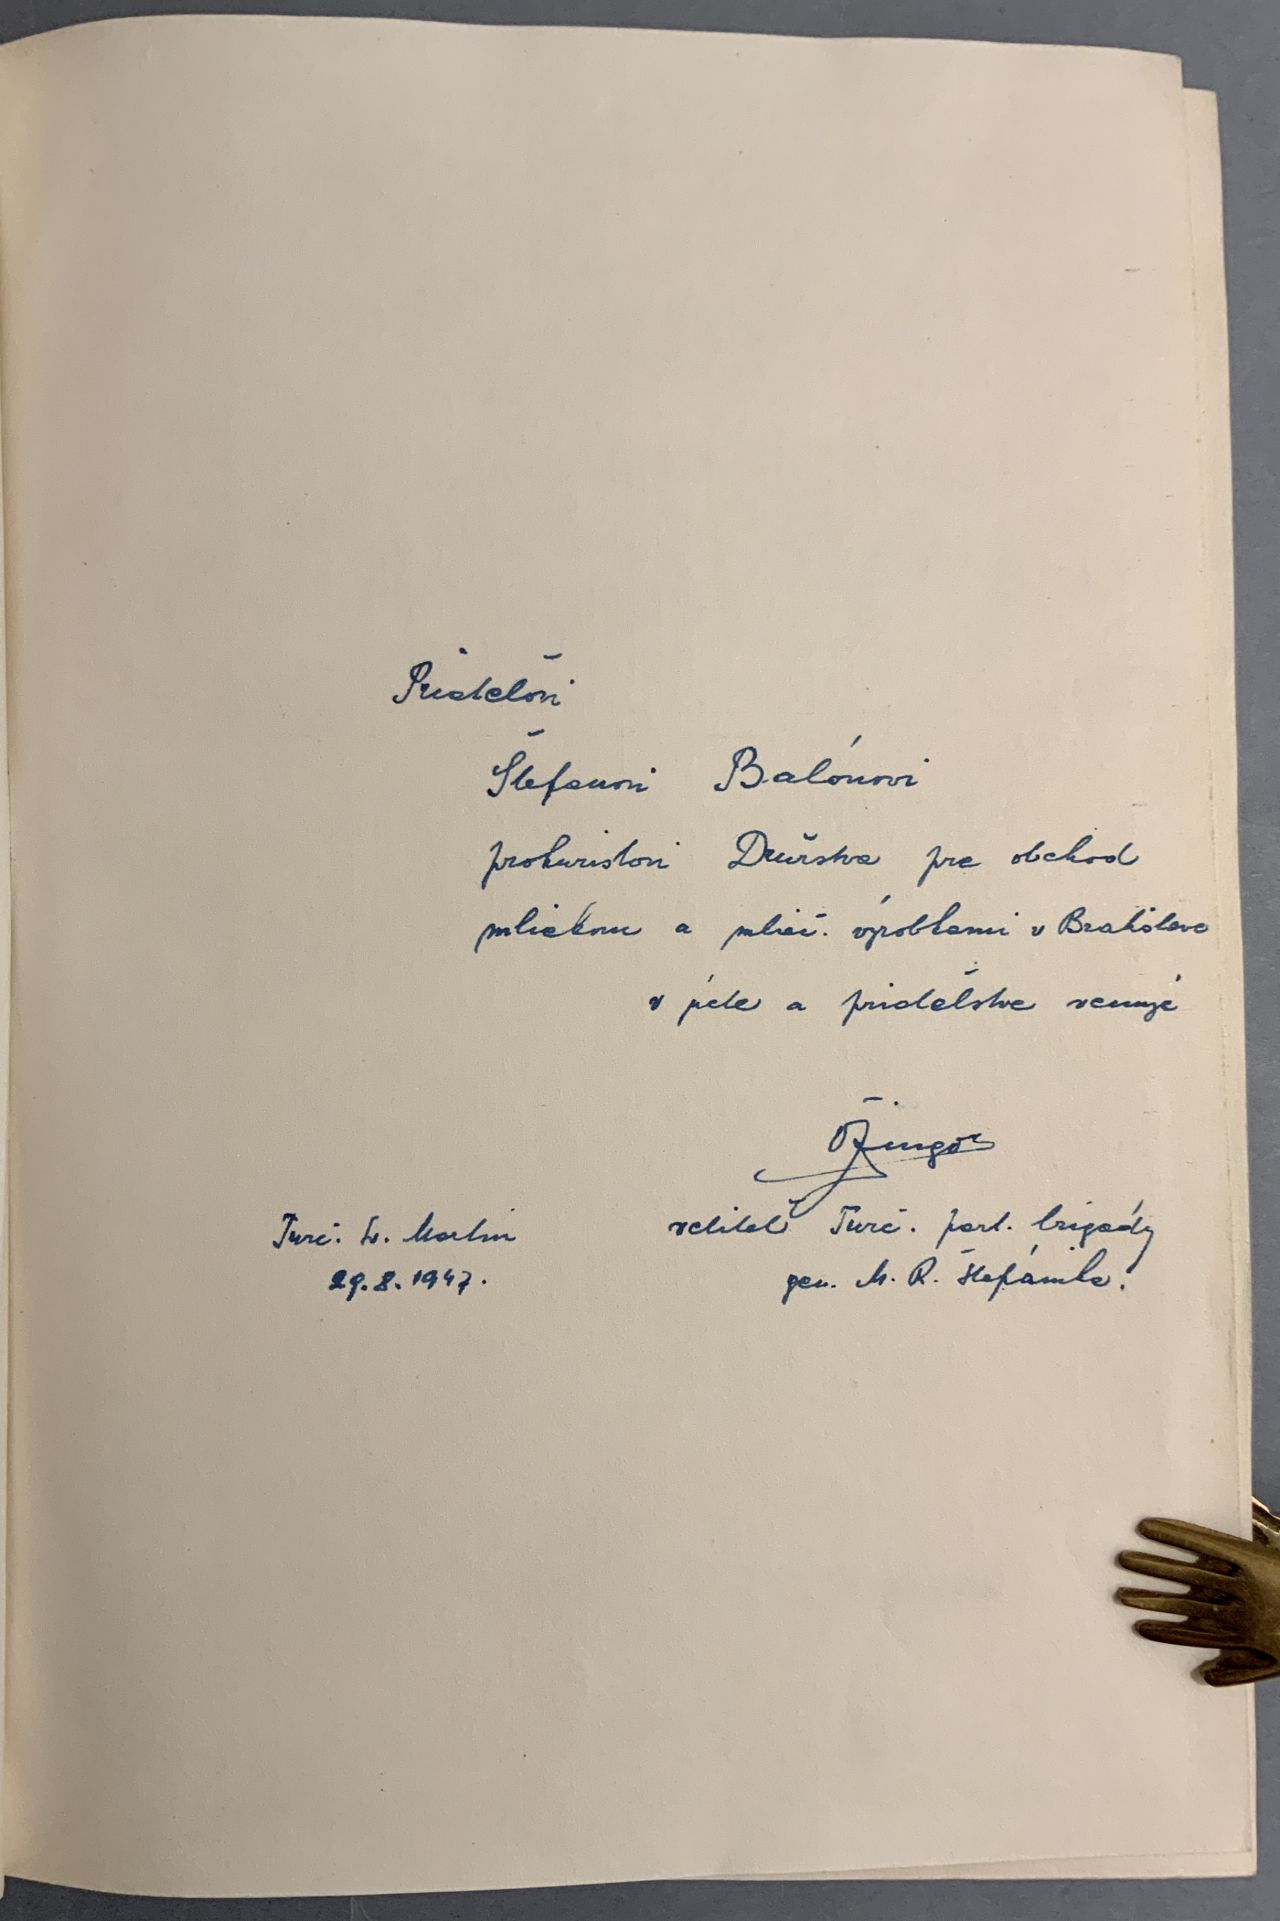 Priateľovi
Štefanovi Balónovi
prokuristovi Družstva pre obchod
mliekom a mlieč. výrobkami v Bratislave
v úcte a priateľstve venuje
Žingor
veliteľ Turč. part. brigády
gen. M. R. Štefánika.
Turč. Sv. Martin
29.8.1947.